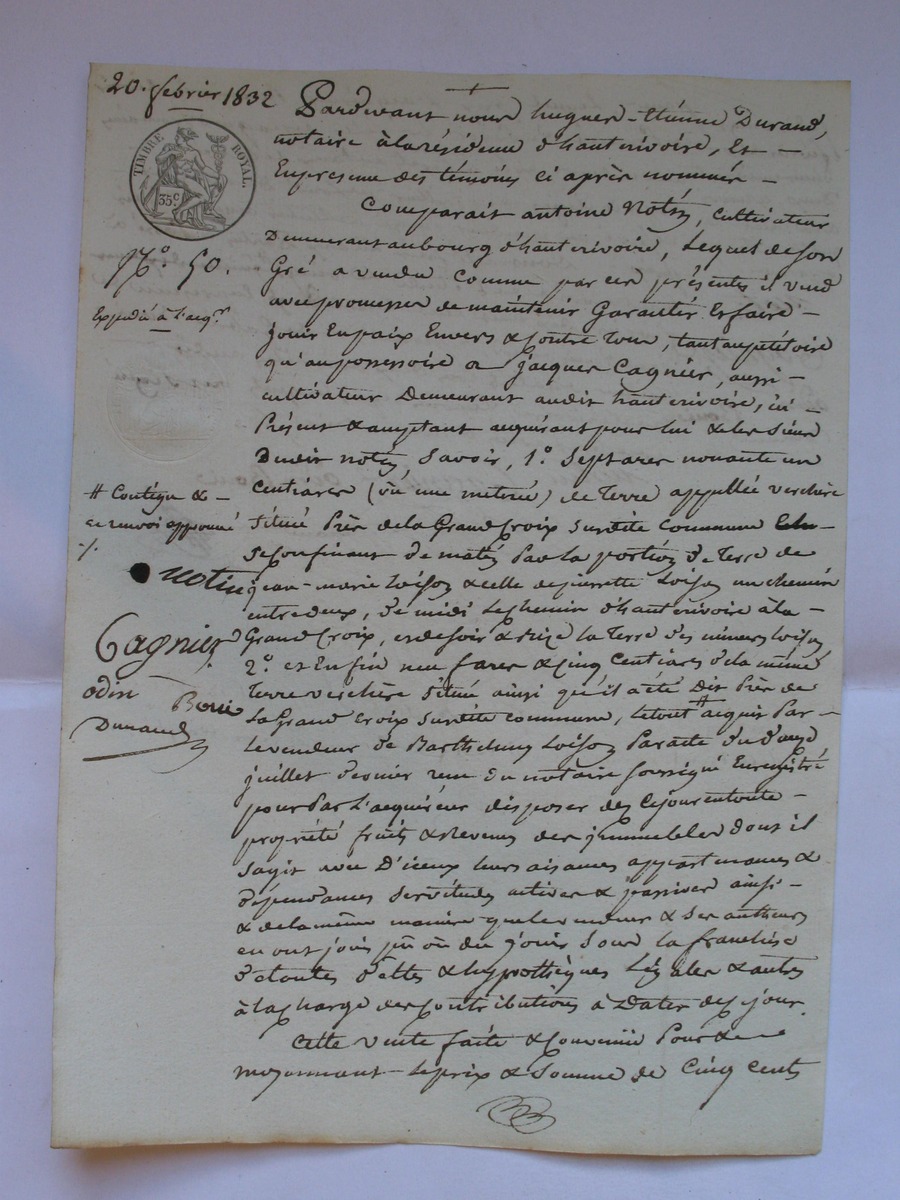 20. febrier 1832
TIMBRE ROYAL.
35 c.
N.o 50.
Expédié à l'acq.r
# Contigu &
ce renvoi approuvé
notin
Cagnier
odin
Boui
Durand
Pardevant nous hugues-Etienne Durand,
notaire à la résidence d'hauterivoire, Et –
En presence des témoins ci après nommés –
Comparait antoine Notin, cultivateur
Demeurant au bourg d'hauterivoire, Lequel de son
Gré a vendu comme par ces présentes il vend
avec promesse de maintenir Garantir Et faire –
jouir En paix Envers & Contre Tous, tant au petitoire
qu'au possessoire a jacques Cagnier, aussi –
cultivateur Demeurant audit hauterivoire, ici –
Présent & acceptant acquérant pour lui & les siens
Dudit notin, Savoir, 1.o Sept ares nonante un
Centiares (ou une meterée) de Terre appellée verchère
Située Près de la Grand Croix Surdite commune
Se Confinant de matin Par la portion de Terre de
jean-marie Loison & celle de pierrette Loison un chemin
entre deux, de midi Le chemin d'hauterivoire à la –
Grand Croix, et de soir & bize la Terre des mineurs Loison
2.o et Enfin neuf ares & Cinq Centiares de la même
Terre verchère Située ainsi qu'il a été Dit Près de
La Grand Croix Surdite commune, le tout # acquis Par –
Le vendeur de Barthelemy Loison Par acte du douze
juillet dernier reçu du notaire Soussigné Enregistré
pour Par L'acquéreur disposer dès Ce jour en toute –
propriété fruits & Revenus des jmmeubles dont il
Sagit avec D'iceux leurs aisances appartenances &
dépendances Servitudes actives & passives ainsi –
& de la même manière que le vendeur & Ses autheurs
en ont joui pû ou du jouir Sous la franchise
de toutes dettes & hypothèques Légales & autres
à la Charge des Contributions à Dater de ce jour.
Cette vente faite & Convenüe Pour &
moyennant Le prix & Somme de Cinq Cents